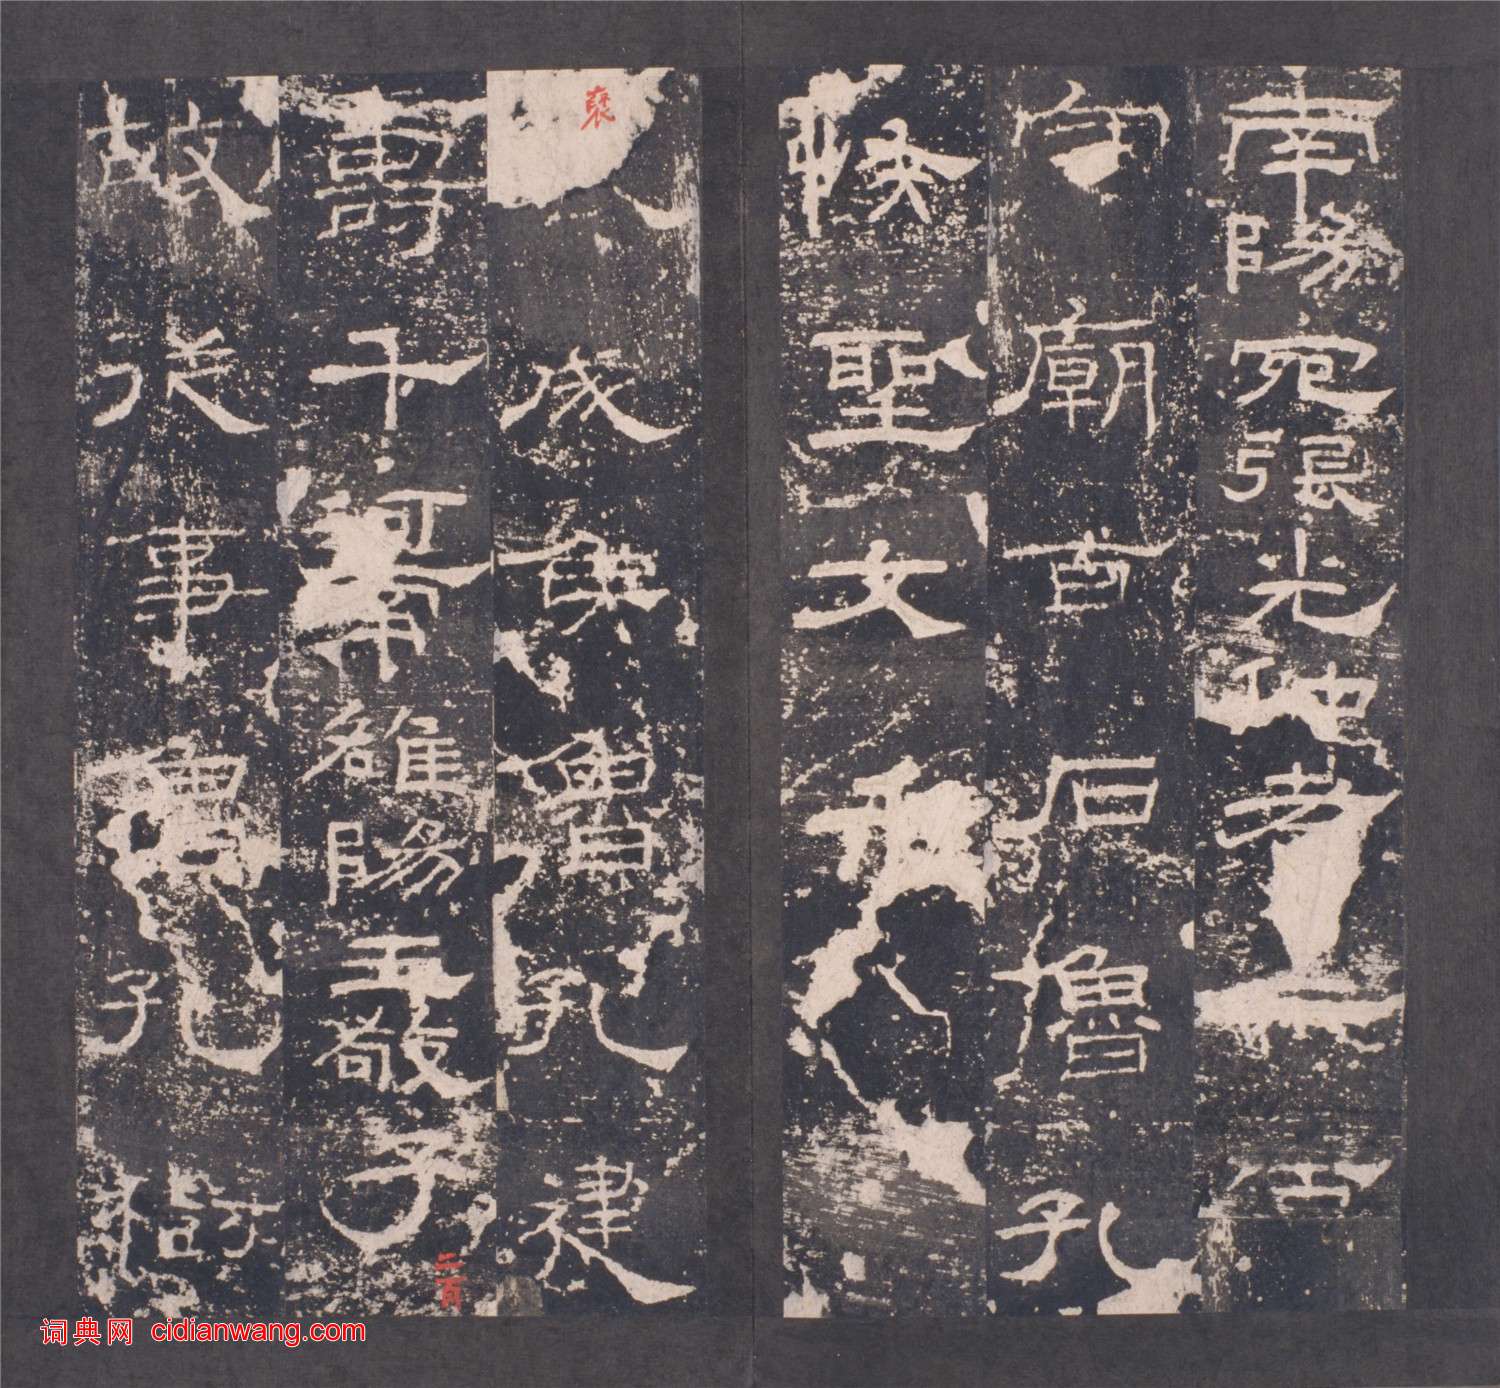 南陽宛張光仲孝
守廟百石魯孔
恢聖文
褒成侯魯孔建
壽千河南雒陽王敬子二百
故從事魯孔樹
词典网 cidianwang.com